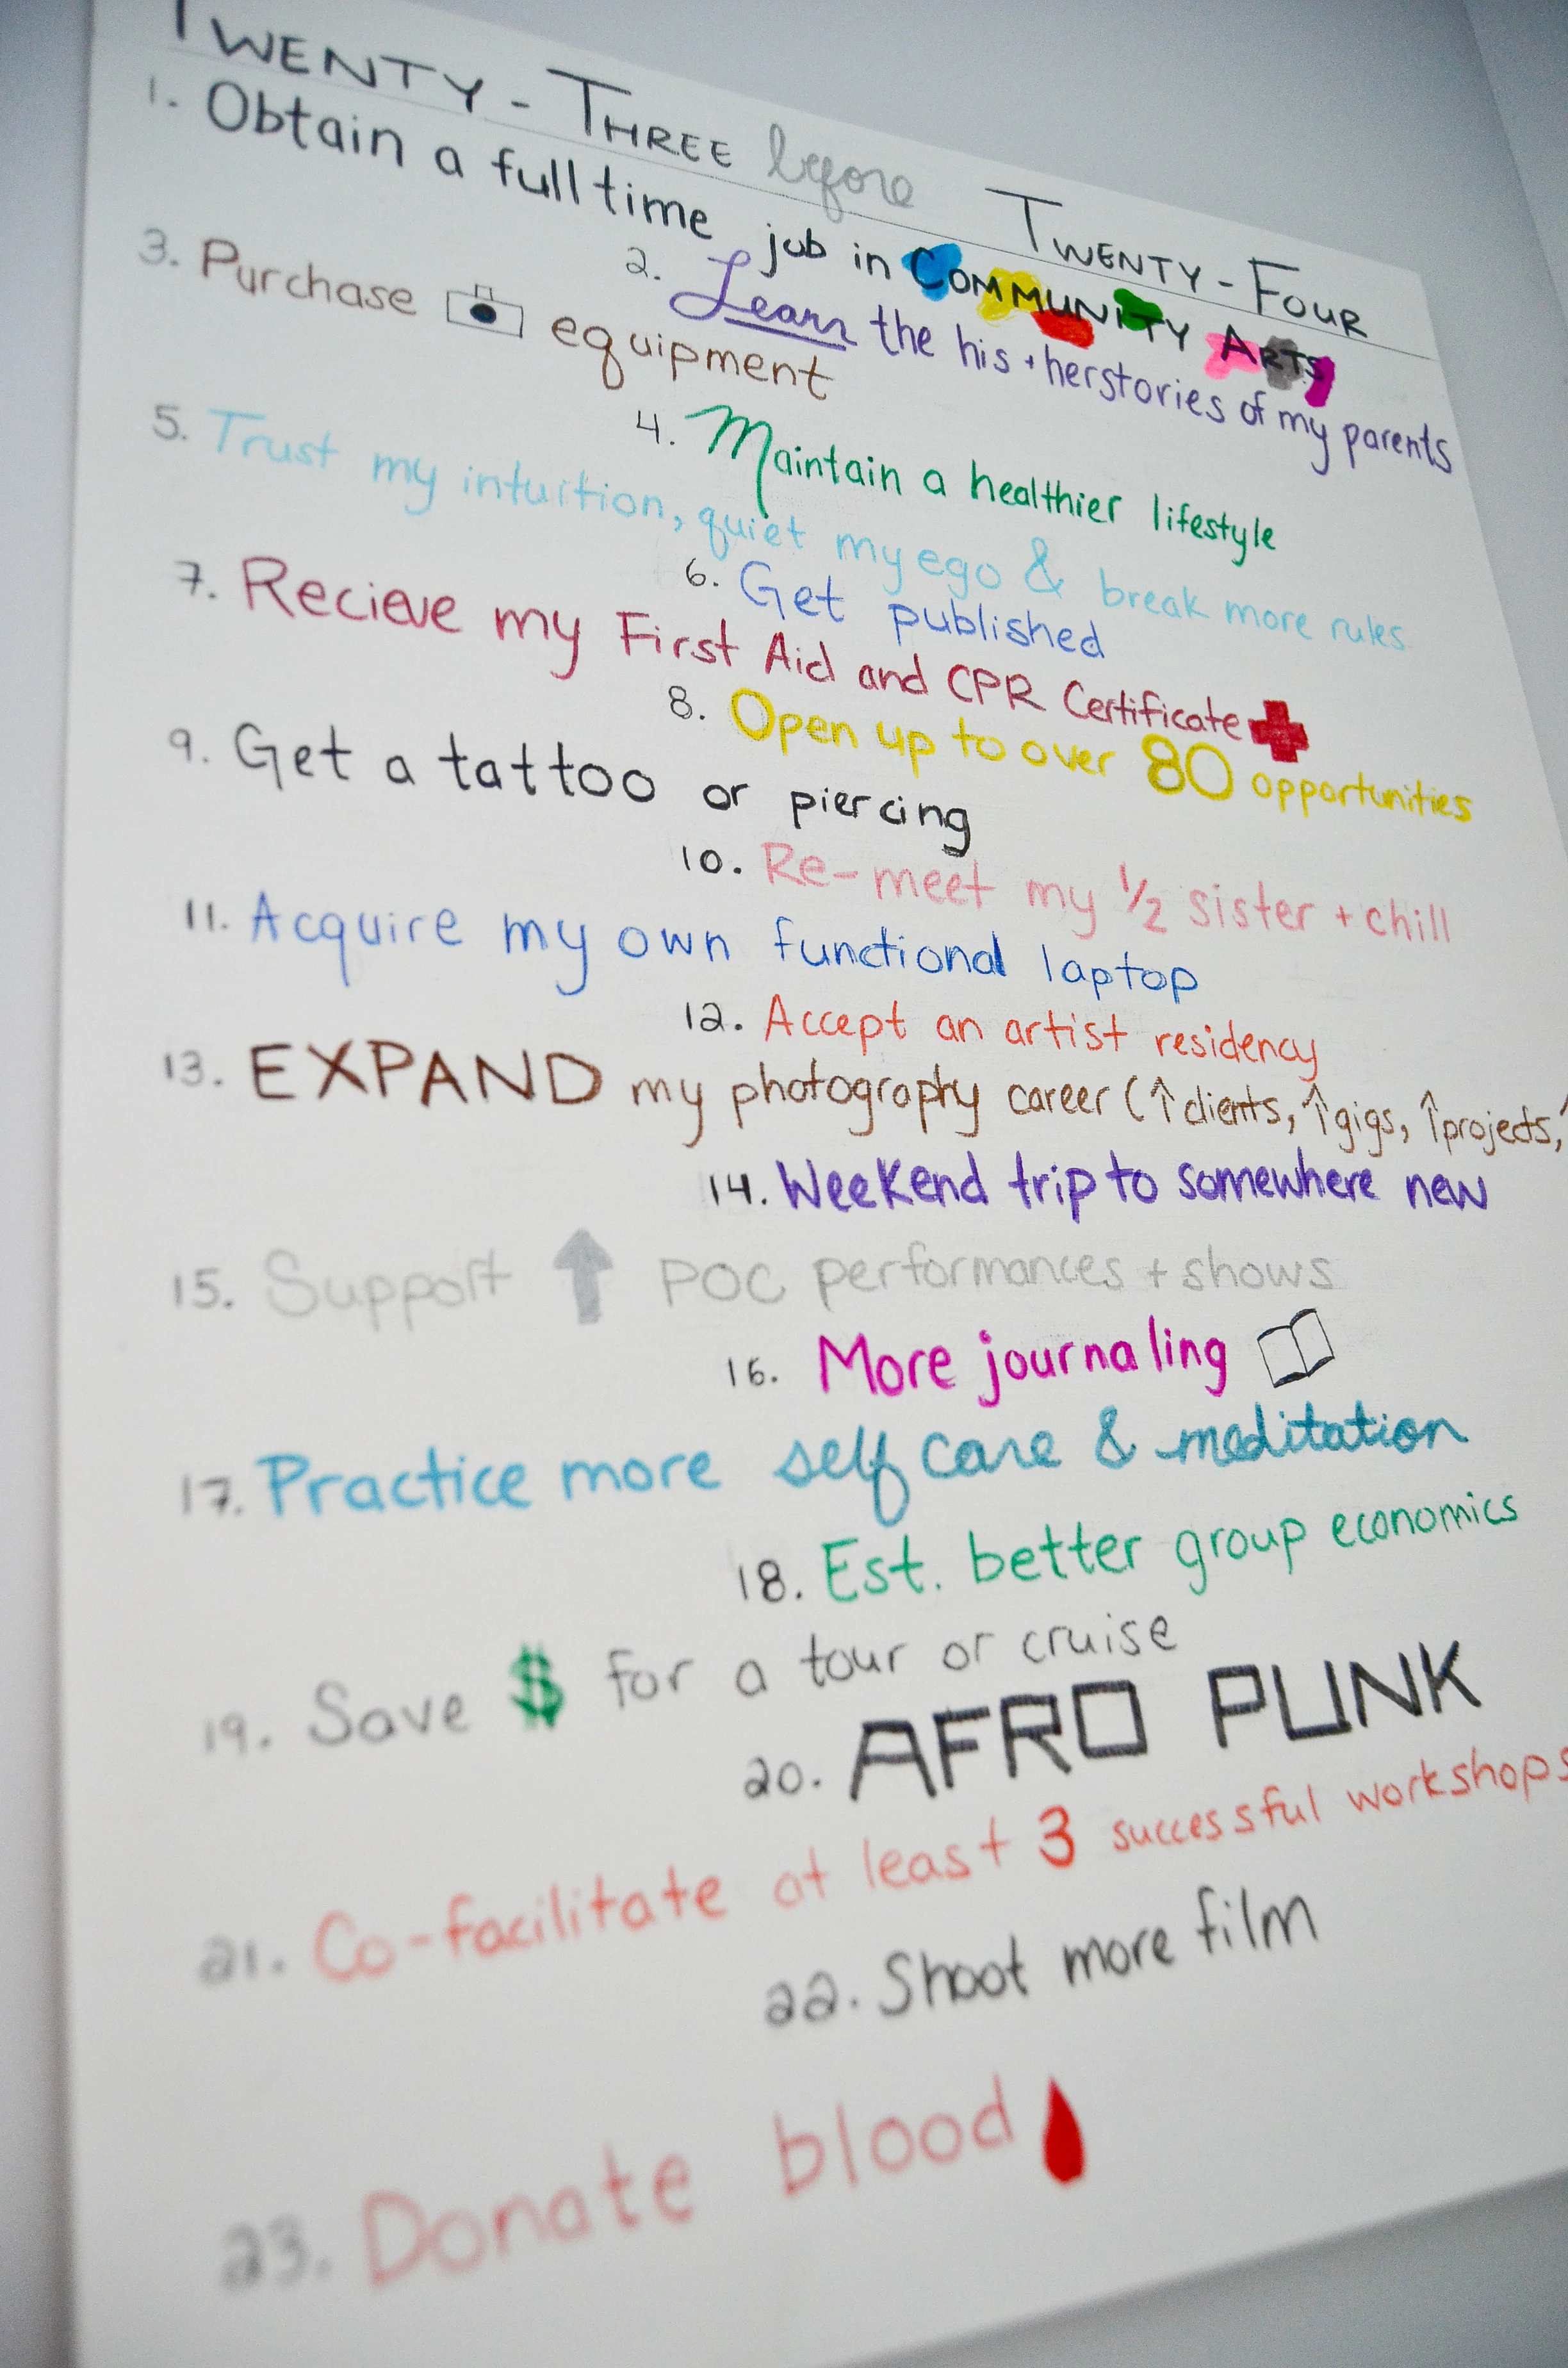 TWENTY-THREE before TWENTY-FOUR
1. Obtain a full time job in COMMUNITY ARTS
2. Learn the his + herstories of my parents
3. Purchase equipment
4. Maintain a healthier lifestyle
5. Trust my intuition, quiet my ego & break more rules
6. Get published
7. Recieve my First Aid and CPR Certificate
8. Open up to over 80 opportunities
9. Get a tattoo or piercing
10. Re-meet my 1/2 sister + chill
11. Acquire my own functional laptop
12. Accept an artist residency
13. EXPAND my photography career (↑clients, ↑gigs, ↑projects,
14. Weekend trip to somewhere new
15. Support ↑ POC performances + shows
16. More journaling
17. Practice more self care & meditation
18. Est. better group economics
19. Save $ for a tour or cruise
20. AFRO PUNK
21. Co-facilitate at least 3 successful workshops
22. Shoot more film
23. Donate blood